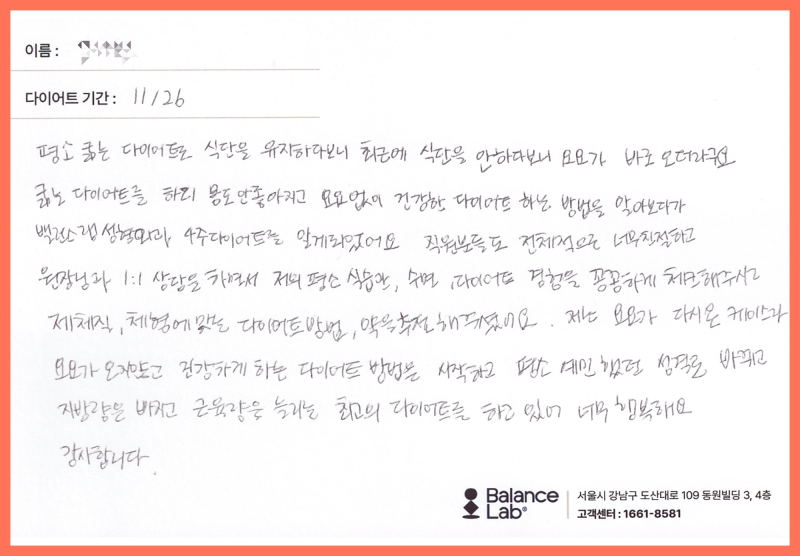 이름 :
다이어트 기간 : 11/26
평소 굶는 다이어트로 식단을 유지하다보니 최근에 식단을 안하다보니 요요가 바로 오더라구요
굶는 다이어트를 하니 몸도 안좋아지고 요요없이 건강한 다이어트 하는 방법을 알아보다가
밸런스랩 성형외과 4주다이어트를 알게되었어요 직원분들도 전체적으로 너무친절하고
원장님과 1:1 상담을 하면서 저의 평소 식습관, 수면, 다이어트 경험을 꼼꼼하게 체크해주시고
제체질, 체형에 맞는 다이어트방법, 약을 추절해주셨어요. 저는 요요가 다시온 케이스라
요요가 오지않고 건강하게 하는 다이어트 방법을 시작하고 평소 예민했던 성격도 바뀌고
지방량은 빠지고 근육량은 늘리는 최고의 다이어트를 하고 있어 너무 행복해요
감사합니다.
Balance Lab®
서울시 강남구 도산대로 109 동원빌딩 3, 4층
고객센터 : 1661-8581